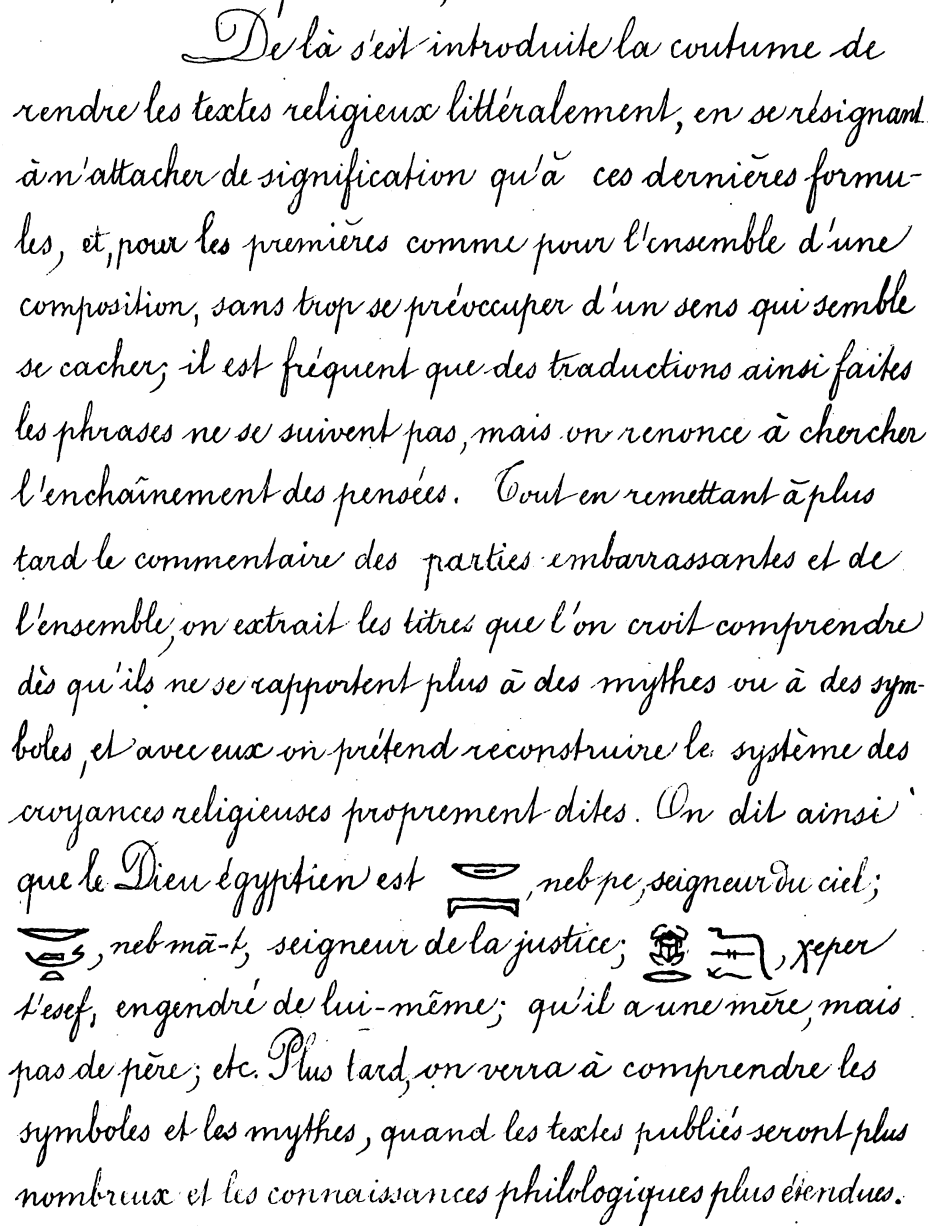 De là s'est introduite la coutume de
rendre les textes religieux littéralement, en se résignant
à n'attacher de signification qu'à ces dernières formu-
les, et, pour les premières comme pour l'ensemble d'une
composition, sans trop se préoccuper d'un sens qui semble
se cacher; il est fréquent que des traductions ainsi faites
les phrases ne se suivent pas, mais on renonce à chercher
l'enchaînement des pensées. Tout en remettant à plus
tard le commentaire des parties embarrassantes et de
l'ensemble, on extrait les titres que l'on croit comprendre
dès qu'ils ne se rapportent plus à des mythes ou à des sym-
boles, et avec eux on prétend reconstruire le système des
croyances religieuses proprement dites. On dit ainsi
que le Dieu égyptien est , neb pe, seigneur du ciel;
, neb mā-t, seigneur de la justice; , χeper
t'esef, engendré de lui-même; qu'il a une mère, mais
pas de père; etc. Plus tard, on verra à comprendre les
symboles et les mythes, quand les textes publiés seront plus
nombreux et les connaissances philologiques plus étendues.